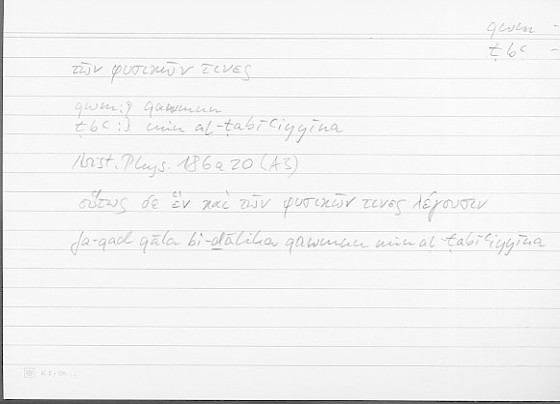 qwm -
ṭbʿ -
τῶν φυσικῶν τινες
qwm:9 qawmun
ṭbʿ:3 min al-ṭabīʿiyyīna
Arist. Phys. 186a20 (A3)
οὕτως δὲ ἓν καὶ τῶν φυσικῶν τινες λέγουσιν
fa-qad qāla bi-ḏālika qawmun min al-ṭabīʿiyyīna